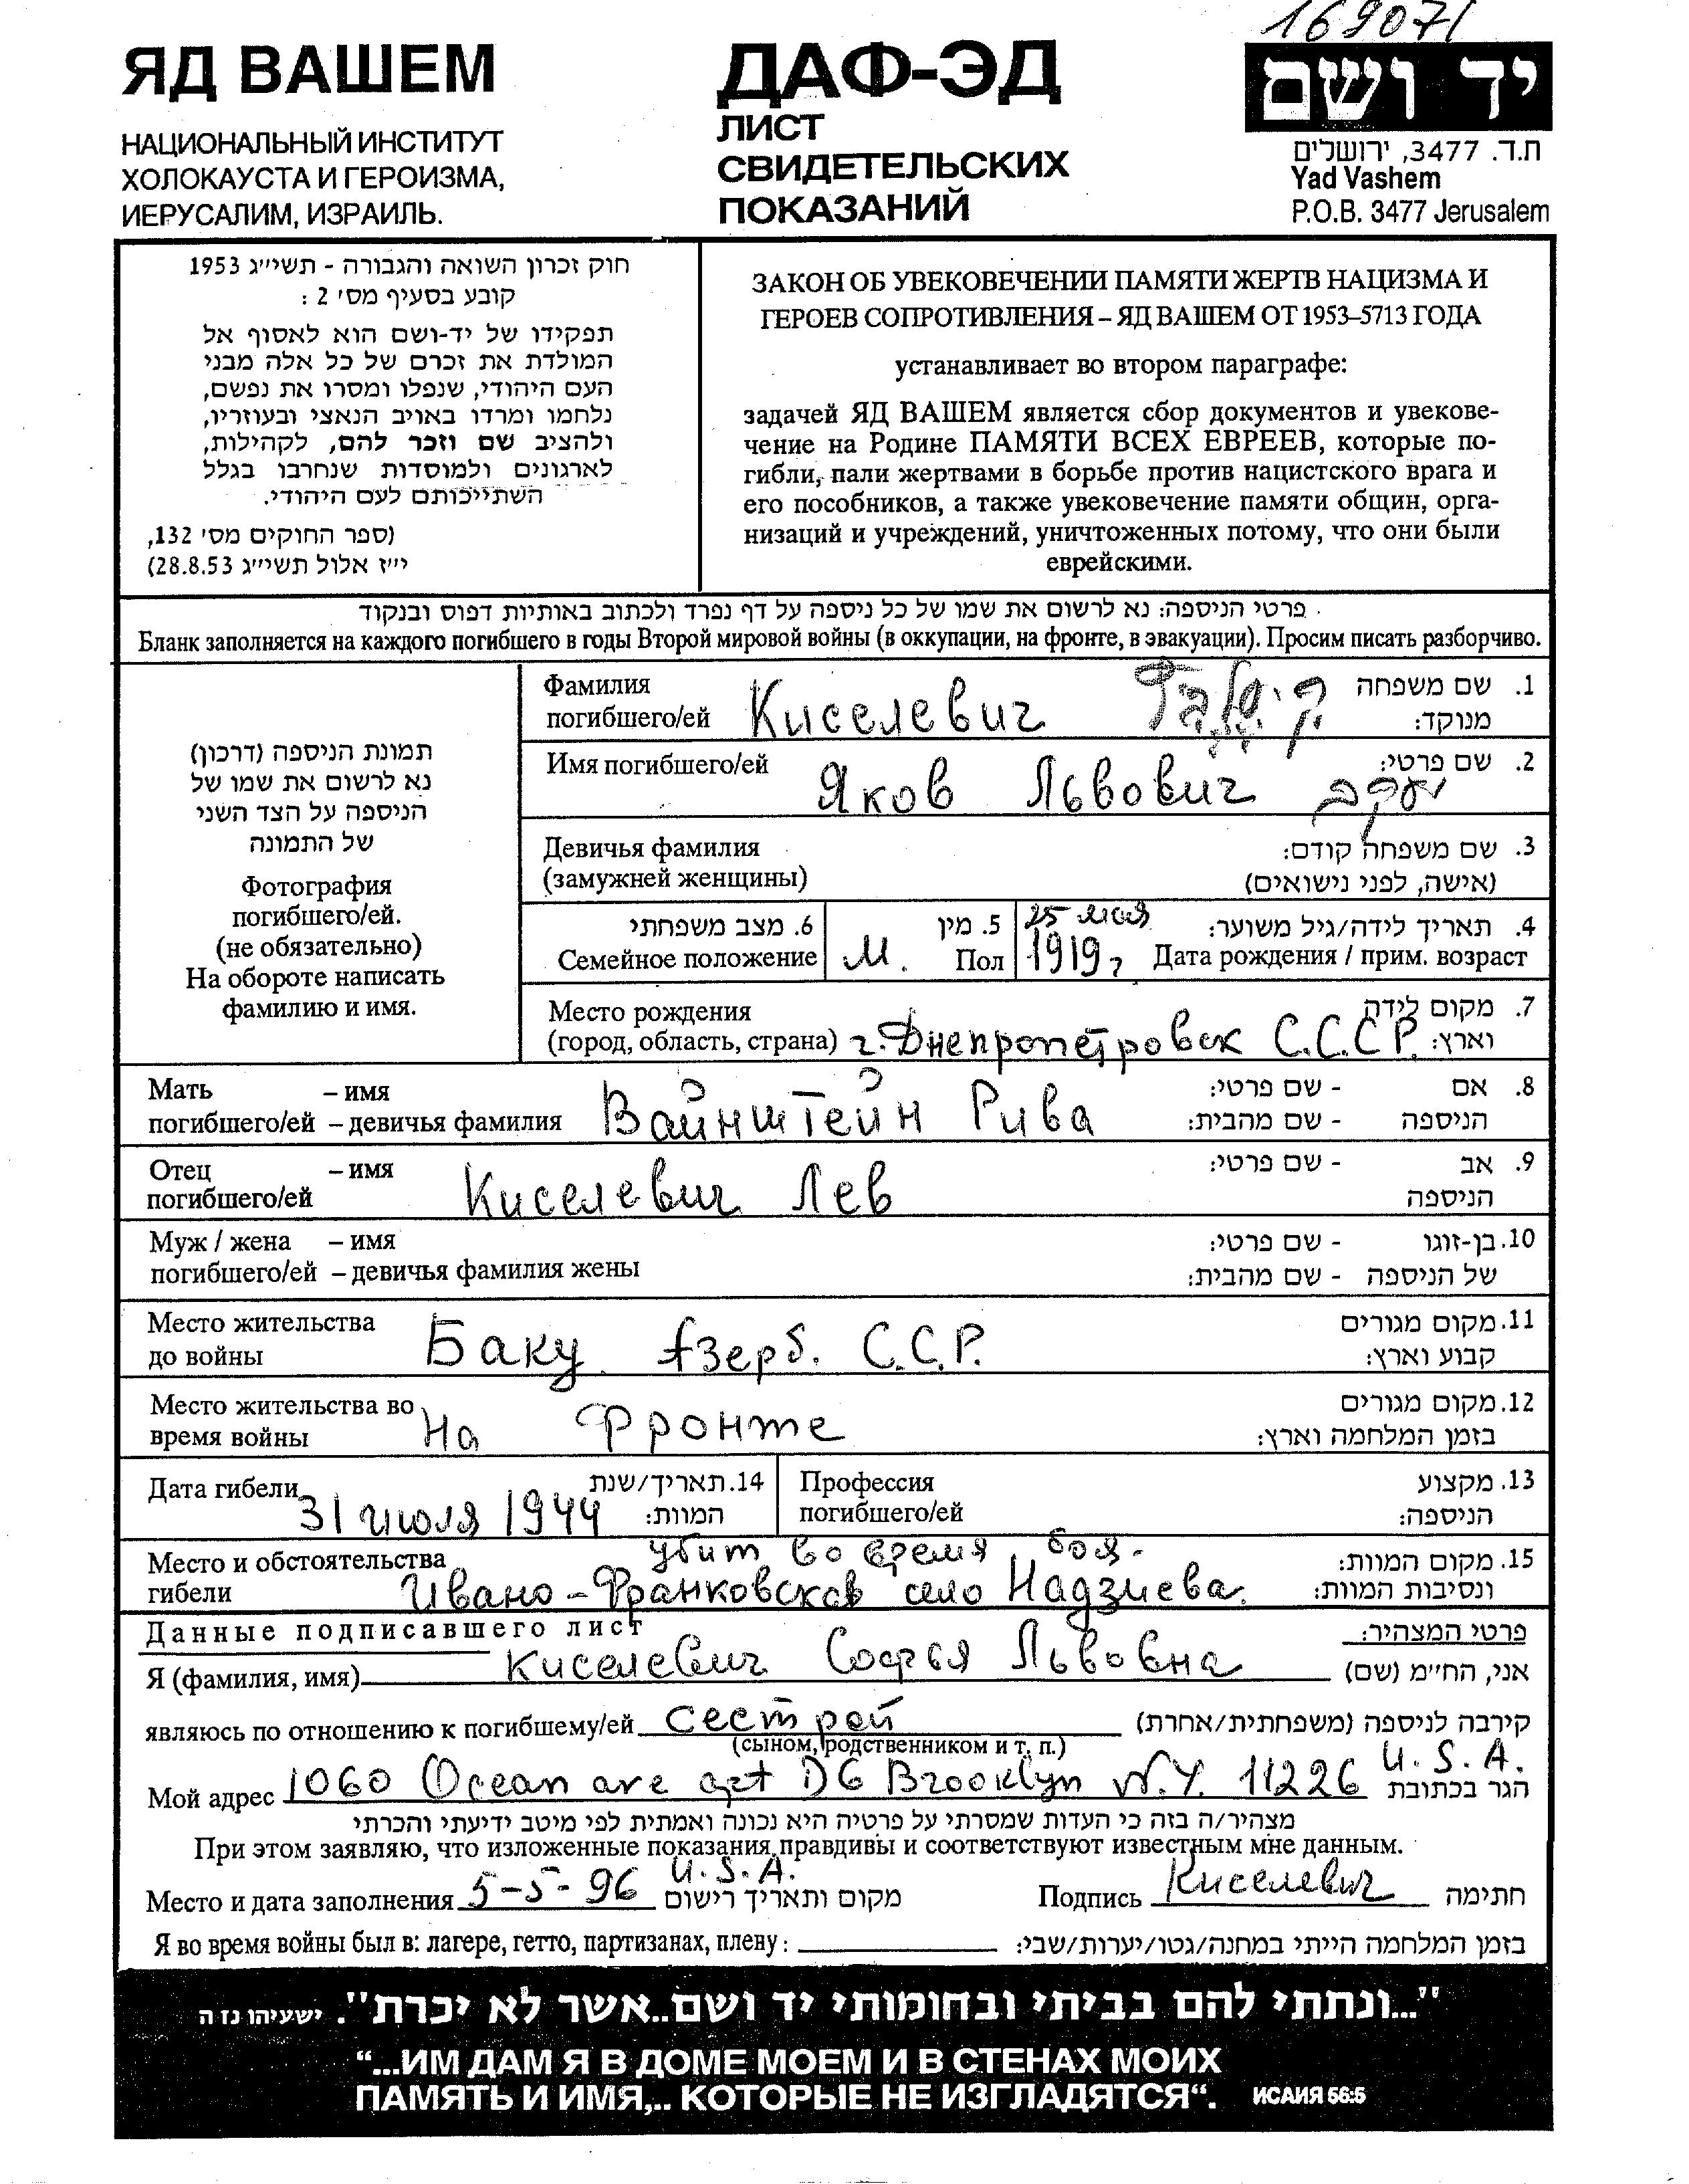 169071
ЯД ВАШЕМ
НАЦИОНАЛЬНЫЙ ИНСТИТУТ
ХОЛОКАУСТА И ГЕРОИЗМА,
ИЕРУСАЛИМ, ИЗРАИЛЬ.
ДАФ-ЭД
ЛИСТ
СВИДЕТЕЛЬСКИХ
ПОКАЗАНИЙ
יד ושם
ת.ד. 3477, ירושלים
Yad Vashem
P.O.B. 3477 Jerusalem
חוק זכרון השואה והגבורה - תשי״ג 1953
קובע בסעיף מס׳ 2 :
תפקידו של יד-ושם הוא לאסוף אל
המולדת את זכרם של כל אלה מבני
העם היהודי, שנפלו ומסרו את נפשם,
נלחמו ומרדו באויב הנאצי ובעוזריו,
ולהציב שם וזכר להם, לקהילות,
לארגונים ולמוסדות שנחרבו בגלל
השתייכותם לעם היהודי.
(ספר החוקים מס׳ 132,
י״ז אלול תשי״ג 28.8.53)
ЗАКОН ОБ УВЕКОВЕЧЕНИИ ПАМЯТИ ЖЕРТВ НАЦИЗМА И
ГЕРОЕВ СОПРОТИВЛЕНИЯ – ЯД ВАШЕМ ОТ 1953–5713 ГОДА
устанавливает во втором параграфе:
задачей ЯД ВАШЕМ является сбор документов и увекове-
чение на Родине ПАМЯТИ ВСЕХ ЕВРЕЕВ, которые по-
гибли, пали жертвами в борьбе против нацистского врага и
его пособников, а также увековечение памяти общин, орга-
низаций и учреждений, уничтоженных потому, что они были
еврейскими.
פרטי הניספה: נא לרשום את שמו של כל ניספה על דף נפרד ולכתוב באותיות דפוס ובנקוד
Бланк заполняется на каждого погибшего в годы Второй мировой войны (в оккупации, на фронте, в эвакуации). Просим писать разборчиво.
תמונת הניספה (דרכון)
נא לרשום את שמו של
הניספה על הצד השני
של התמונה
Фотография
погибшего/ей.
(не обязательно)
На обороте написать
фамилию и имя.
Фамилия 1. שם משפחה
погибшего/ей Киселевич מנוקד:
Имя погибшего/ей Яков Львович יעקב 2. שם פרטי:
Девичья фамилия 3. שם משפחה קודם:
(замужней женщины) (אישה, לפני נישואים)
6. מצב משפחתי 5. מין 25 мая 4. תאריך לידה/גיל משוער:
Семейное положение М. Пол 1919 г Дата рождения / прим. возраст
Место рождения 7. מקום לידה
(город, область, страна) г. Днепропетровск С.С.С.Р. וארץ:
Мать – имя 8. אם - שם פרטי:
погибшего/ей – девичья фамилия Вайнштейн Рива הניספה - שם מהבית:
Отец – имя 9. אב - שם פרטי:
погибшего/ей Киселевич Лев הניספה
Муж / жена – имя 10. בן-זוגו - שם פרטי:
погибшего/ей – девичья фамилия жены של הניספה - שם מהבית:
Место жительства 11. מקום מגורים
до войны Баку Азерб. С.С.Р. קבוע וארץ:
Место жительства во 12. מקום מגורים
время войны На Фронте בזמן המלחמה וארץ:
Дата гибели 14. תאריך/שנת Профессия 13. מקצוע
31 июля 1944 המוות: погибшего/ей הניספה:
Место и обстоятельства убит во время боя. 15. מקום המוות:
гибели Ивано-Франковсков село Надзиева. ונסיבות המוות:
Данные подписавшего лист פרטי המצהיר:
Я (фамилия, имя) Киселевич Софья Львовна אני, הח״מ (שם)
являюсь по отношению к погибшему/ей сестрой קירבה לניספה (משפחתית/אחרת)
(сыном, родственником и т. п.)
Мой адрес 1060 Ocean ave apt D6 Brooklyn N.Y. 11226 U.S.A. הגר בכתובת
מצהיר/ה בזה כי העדות שמסרתי על פרטיה היא נכונה ואמתית לפי מיטב ידיעתי והכרתי
При этом заявляю, что изложенные показания правдивы и соответствуют известным мне данным.
Место и дата заполнения 5-5-96 U.S.A. מקום ותאריך רישום Подпись Киселевич חתימה
Я во время войны был в: лагере, гетто, партизанах, плену: בזמן המלחמה הייתי במחנה/גטו/יערות/שבי:
"...ונתתי להם בביתי ובחומותי יד ושם..אשר לא יכרת". ישעיהו נז ה
“...ИМ ДАМ Я В ДОМЕ МОЕМ И В СТЕНАХ МОИХ
ПАМЯТЬ И ИМЯ,.. КОТОРЫЕ НЕ ИЗГЛАДЯТСЯ“. ИСАИЯ 56:5